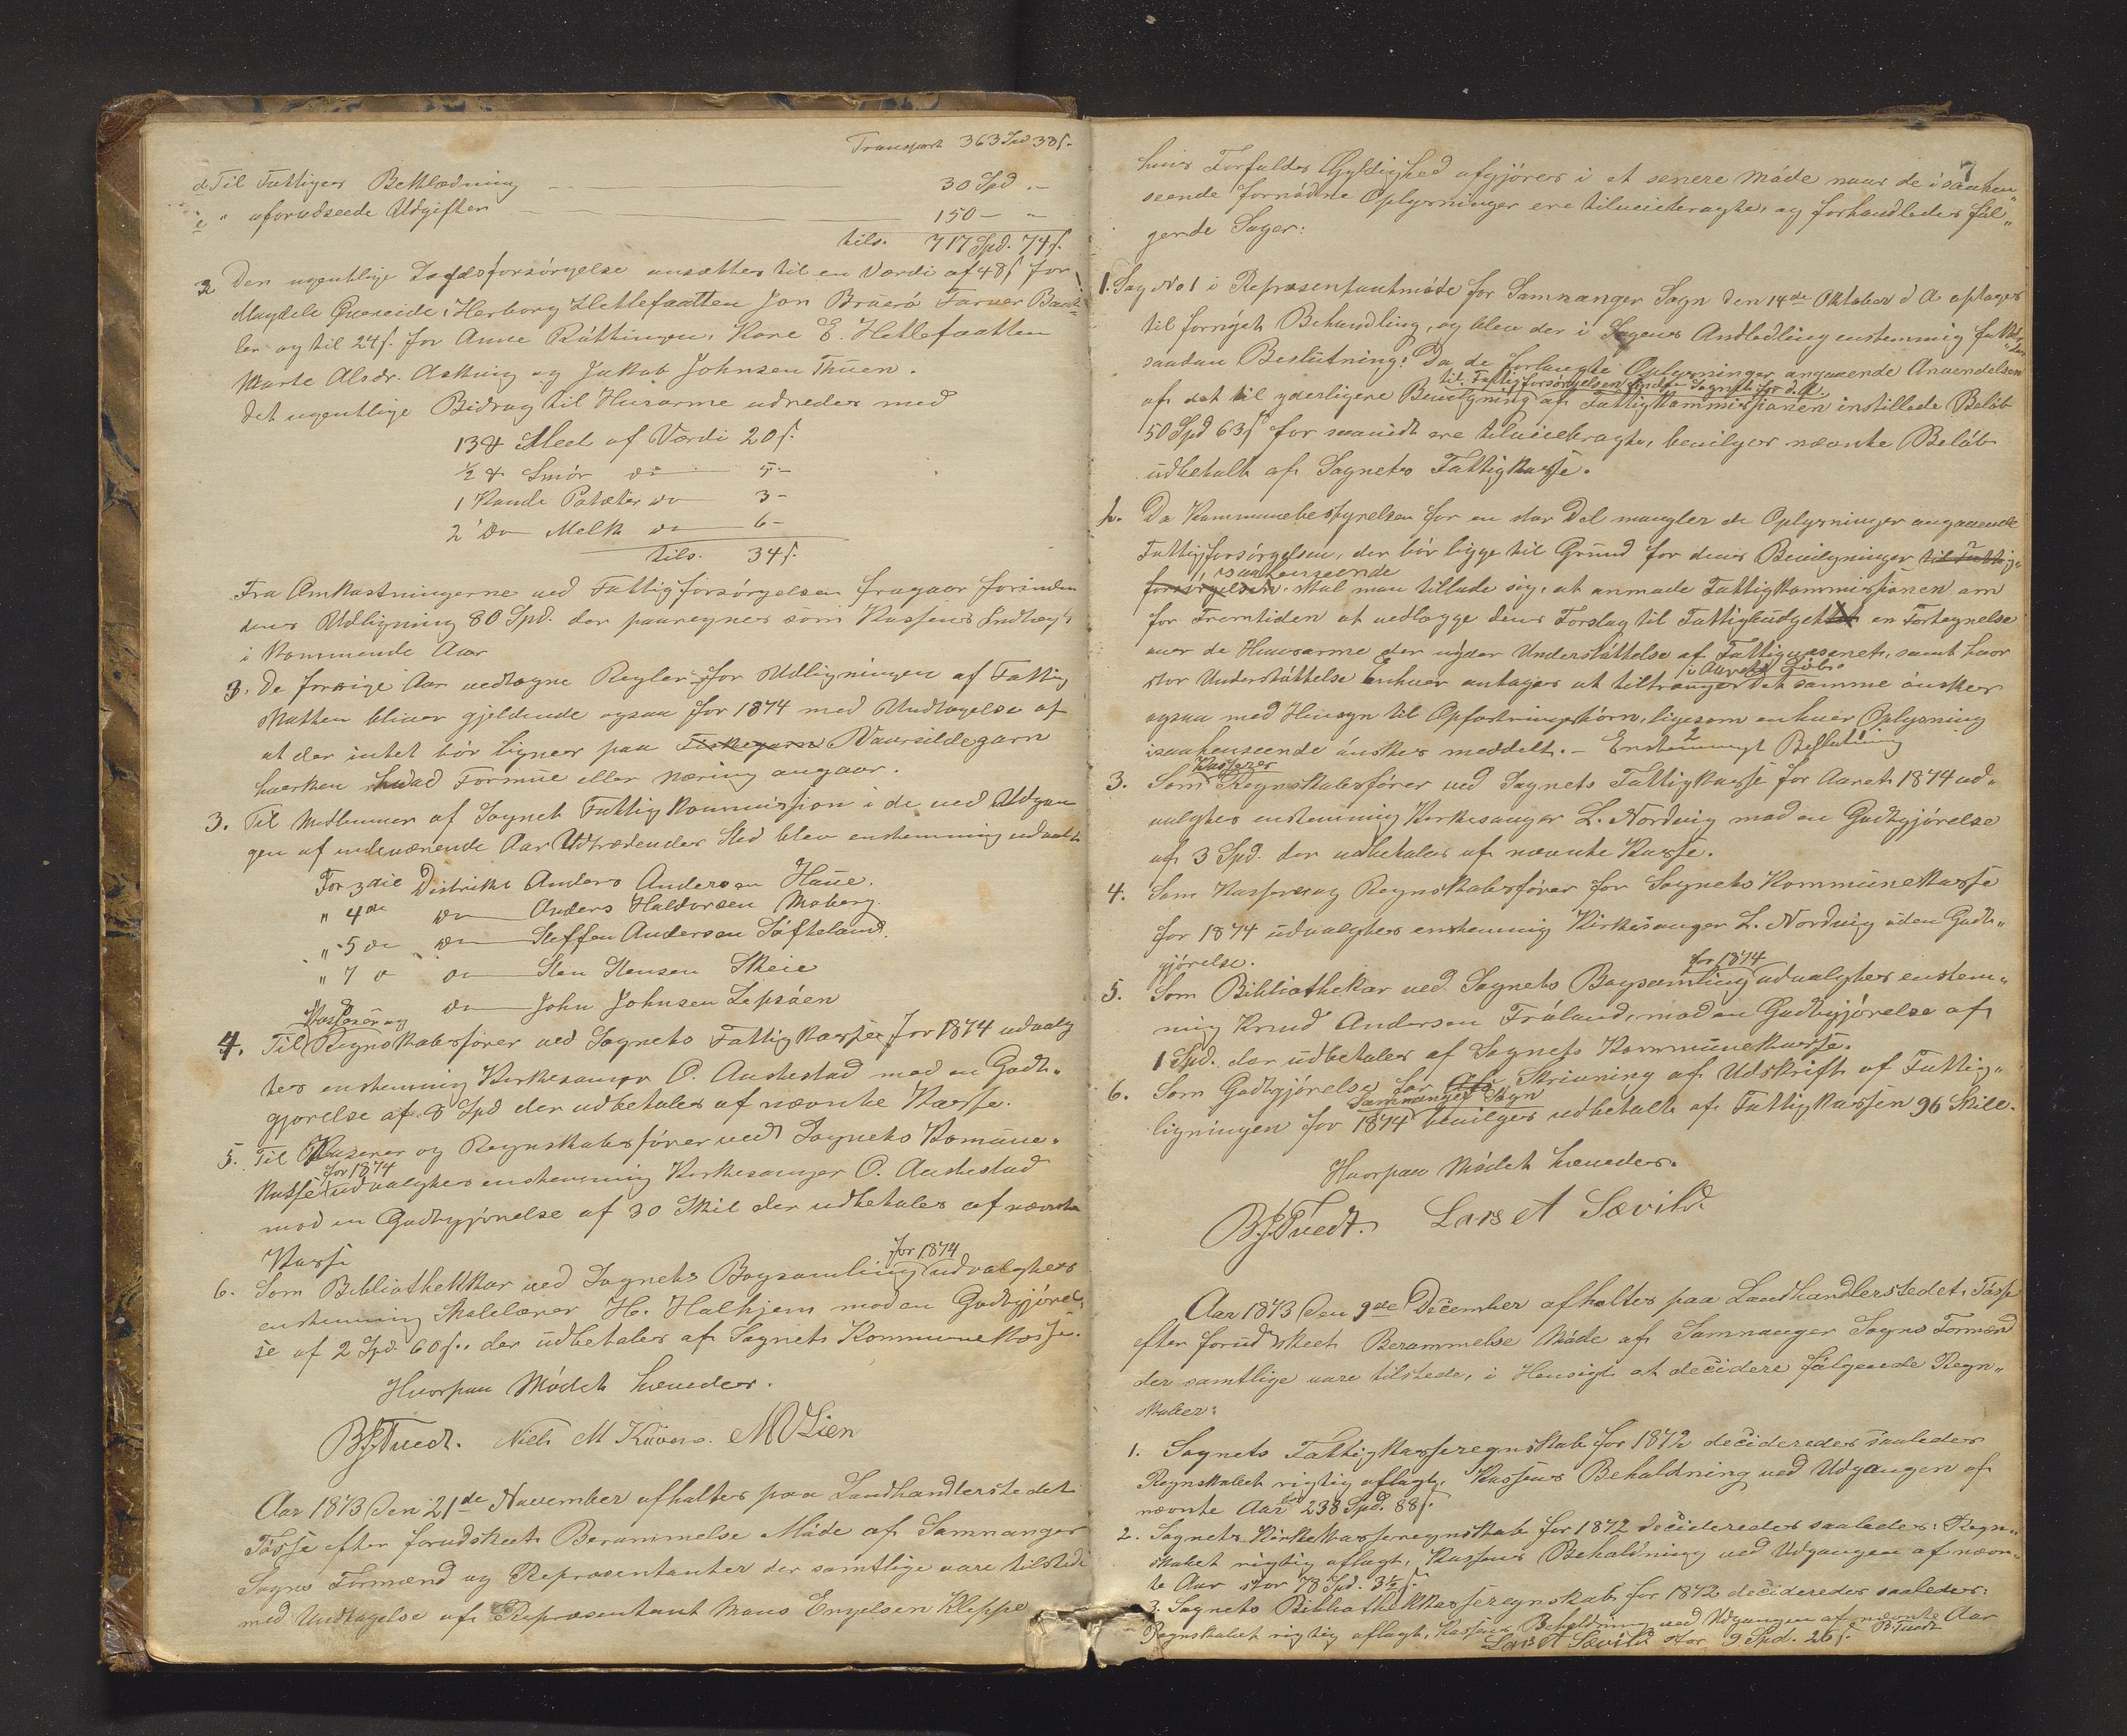 Transport 363 Spd 38 s.
d Til Fattiges Beklædning 30 Spd. –
e " uforudseede Udgifter 150 – –
tils. 717 Spd. 74 s.
2 Den ugentlige Lægdsforsørgelse ansættes til en Værdi af 48 s for
Magdele Qvereide, Herborg Hetlefaatten Jon Bruerø
ler og til 24 s. for Anne Røttingen, Kari E. Hetlefaatten
Marte Alsdr. Askvig og Jakob Johnsen Thuen.
Det ugentlige Bidrag til Husarme udredes med
13 ℔ Meel af Værdi 20 s.
½ ℔ Smør do 5 –
1 Kande Poteter do 3 –
2 do Melk do 6 –
tils. 34 s.
Fra Omkostningerne ved Fattigforsørgelsen fragaar forinden
dens Udligning 80 Spd. der paaregnes som Kassens Indtægt
i kommende Aar
3. De forrige Aar vedtagne Regler for Udligningen af Fattig
skatten bliver gjeldende ogsaa for 1874 med Undtagelse af
at der intet bør lignes paa Fiskegarn Vaarsildegarn
hverken hvad Formue eller Næring angaar.
3. Til Medlemmer af Sognets Fattigkommission i de ved Udgan
gen af indeværende Aar Udtrædendes Sted blev enstemming udvalgt
For 3die Distrikt Anders Andersen Haue.
" 4de do Anders Haldorsen Moberg.
" 5 do do Steffen Andersen Søfteland.
" 7 do do Sten Stensen Skeie
" 8 do John Johnsen Lepsøen
Kasserer og
4. Til Regnskabsfører ved Sognets Fattigkasse for 1874 udvalg
tes enstemmig Kirkesanger O. Austestad mod en Godt„
gjørelse af 8 Spd der udbetales af nævnte Kasse.
5. Til Kasserer og Regnskabsfører ved Sognets Komune„
for 1874
kasse udvalgtes enstemmig Kirkesanger O. Austestad
mod en Godtgjørelse af 30 Skil der udbetales af nævnte
Kasse
for 1874
6. Som Bibliothekkar ved Sognets Bogsamling udvalgtes
enstemmig Skolelærer H. Halhjem mod en Godtgjørel„
se af 2 Spd 60 s., der udbetales af Sognets Kommunekasse.
Hvorpaa Mødet hævedes.
B. J. Tvedt. Niels M Kuven. M O Lien
Aar 1873 Den 21de November afholdtes paa Landhandlerstedet
Tøsse efter forudskeet Berammelse Møde af Samnanger
Sogns Formænd og Repræsentanter der samtlige vare tilstede
med Undtagelse af Repræsentant Mons Engelsen Kleppe
7
hvis Forfalds Gyldighed afgjøres i et senere Møde naar de i saahen„
seende fornødne Oplysninger ere tilveiebragte, og forhandledes føl„
gende Sager:
1. Sag No 1 i Repræsentantmøde for Samnanger Sogn den 14de Oktober d A optages
til fornyet Behandling, og blev der i Sagens Andledling enstemmig fattet
saadan Beslutning: Da de forlangte Oplysninger angaaende Anvendelsen
til Fattigforsørgelsen inden Sognet for d. A.
af det til yderligere Bevilgning af Fattigkommissionen instillede Beløb
50 Spd 63 s for saavidt ere tilveiebragte, bevilges nævnte Beløb
udbetalt af Sognets Fattigkasse.
2. Da Kommunebestyrelsen for en stor Del mangler de Oplysninger angaaende
Fattigforsørgelsen, der bør ligge til Grund for dens Bevilgninger til Fattig„
i saahenseende
forsørgelsen, skal man tillade sig, at anmode Fattigkommissionen om
for Fremtiden at vedlægge dens Forslag til Fattigbudgettet en Fortegnelse
over de Huusarme der nyder Understøttelse af Fattigvæsenet, samt hvor
i Aarets Løb.
stor Understøttelse Enhver antages at tiltrænge Det samme ønskes
ogsaa med Hensyn til Opfostringsbørn, ligesom enhver Oplysning
i saahenseende ønskes meddelt. – Enstemmigt Beslutning
Kasserer
3. Som Regnskabsfører ved Sognets Fattigkasse for Aaret 1874 ud„
valgtes enstemmig Kirkesanger L. Nordvig mod en Godtgjørelse
af 3 Spd. der udbetales af nævnte Kasse.
4. Som Kasserer og Regnskabsfører for Sognets Kommunekasse
for 1874 udvalgtes enstemmig Kirkesanger L. Nordvig uden Godt„
gjørelse.
for 1874
5. Som Bibliothekar ved Sognets Bogsamling udvalgtes enstem„
mig Knud Andersen Frøland, mod en Godtgjørelse af
1 Spd. der udbetales af Sognets Kommunekasse.
6. Som Godtgjørelse for Afs Skrivning af Udskrift af Fattig„
Samnanger Sogn
ligningen for 1874 bevilges udbetalt af Fattigkassen 96 Skill.
Hvorpaa Mødet hævedes.
B. J. Tvedt. Lars A Sævild.
Aar 1873 Den 9de December afholtes paa Landhandlerstedet Tøsse
efter forudskeet Berammelse Møde af Samnanger Sogns Formænd
der samtlige vare tilstede, i Hensigt at decidere følgende Regn„
skaber:
1. Sognets Fattigkasseregnskab for 1872 decideredes saaledes
Regnskabet rigtig aflagt, Kassens Beholdning ved Udgangen af
nævnte Aar stor 238 Spd. 88 s.
2. Sognets Kirkekasseregnskab for 1872 decideredes saaledes: Regn„
skabet rigtig aflagt, Kassens Beholdning ved Udgangen af nævn„
te Aar stor 78 Spd. 3½ s.
3. Sognets Bibliothekkasseregnskab for 1872 decideredes saaledes:
Regnskabet rigtig aflagt, Kassens Beholdning ved Udgangen af nævnte Aar
Lars A Sævild stor 9 Spd. 26 s. B. Tvedt